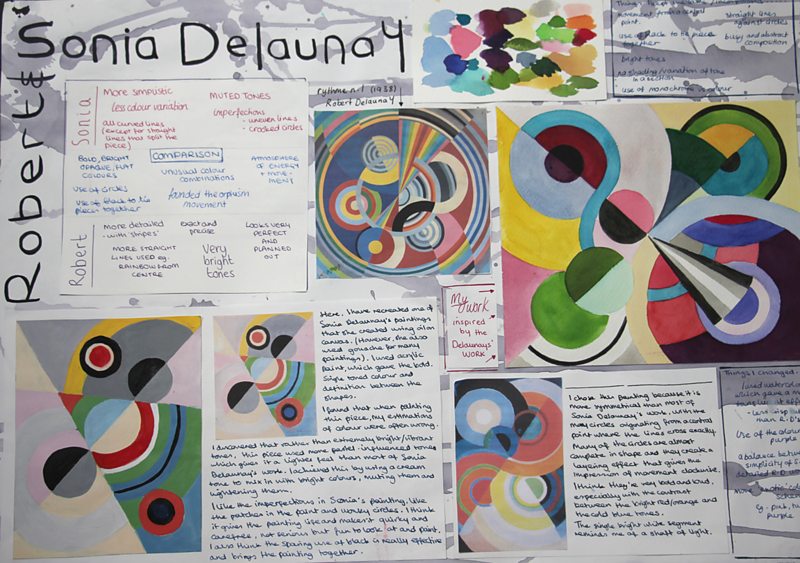 Robert & Sonia Delaunay
Sonia
More simplistic
MUTED TONES
less colour variation
imperfections
- uneven lines
- crooked circles
all curved lines
(except for straight
lines that split the
piece)
BOLD, BRIGHT
OPAQUE, FLAT
COLOURS
COMPARISON
ATMOSPHERE
OF ENERGY
+ MOVE-
MENT
unusual colour
combinations
use of circles
founded the orphism
movement
use of black to tie
pieces together
Robert
More detailed
- with stripes
exact and
precise
LOOKS VERY
PERFECT
AND
PLANNED
OUT
MORE STRAIGHT
LINES USED eg.
RAINBOW FROM
CENTRE
Very
bright
tones
rythme n.1 (1938)
Robert Delaunay
movement from a central
point.
straight lines
against circles
use of black to tie piece
together
busy and abstract
composition
bright tones
no shading/variation of tone
in a section
use of monochrome vs colour
My
work
inspired
by the
Delaunays'
WORK
Here, I have recreated one of
Sonia Delaunay's paintings
that she created using oil on
canvas. (However, she also
used gouache for many
paintings). I used acrylic
paint, which gave the bold,
single toned colour and
definition between the
shapes.
I found that when painting
this piece, my estimations
of colour were often wrong.
I discovered that rather than extremely bright/vibrant
tones, this piece used more pastel-influenced tones
which gives it a lighter feel than most of Sonia
Delaunay's work. I achieved this by using a cream
tone to mix in with bright colours, muting them and
lightening them.
I like the imperfections in Sonia's painting, like
the patches in the paint and wonky circles. I think
it gives the painting life and makes it quirky and
carefree, not serious but fun to look at and paint.
I also think the sparing use of black is really effective
and brings the painting together.
I chose this painting because it is
more symmetrical than most of
Sonia Delaunay's work, with the
many circles originating from a central
point where the lines cross exactly.
Many of the circles are almost
complete in shape and they create a
layering effect that gives the
impression of movement clockwise.
I think they're very bold and loud,
especially with the contrast
between the bright red/orange and
the cold blue tones.
The single bright white segment
reminds me of a shaft of light.
Things I changed
I used watercolour
which gave a mo
- Less insp
than R.D's
Use of the colour
purple
a balance betwee
simplicity of S
detailed R.D wo
scheme
eg. pink,
purple